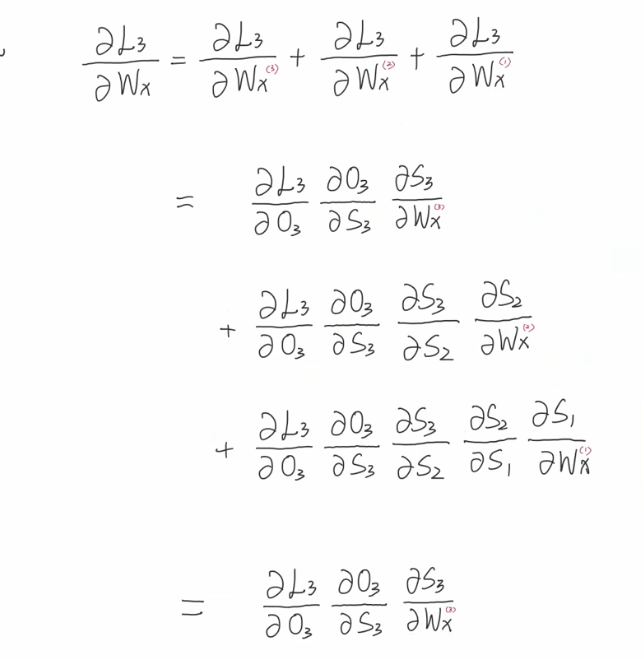 ∂L₃/∂Wx = ∂L₃/∂Wx⁽³⁾ + ∂L₃/∂Wx⁽²⁾ + ∂L₃/∂Wx⁽¹⁾
= ∂L₃/∂O₃ ∂O₃/∂S₃ ∂S₃/∂Wx⁽³⁾
+ ∂L₃/∂O₃ ∂O₃/∂S₃ ∂S₃/∂S₂ ∂S₂/∂Wx⁽²⁾
+ ∂L₃/∂O₃ ∂O₃/∂S₃ ∂S₃/∂S₂ ∂S₂/∂S₁ ∂S₁/∂Wx⁽¹⁾
= ∂L₃/∂O₃ ∂O₃/∂S₃ ∂S₃/∂Wx⁽³⁾